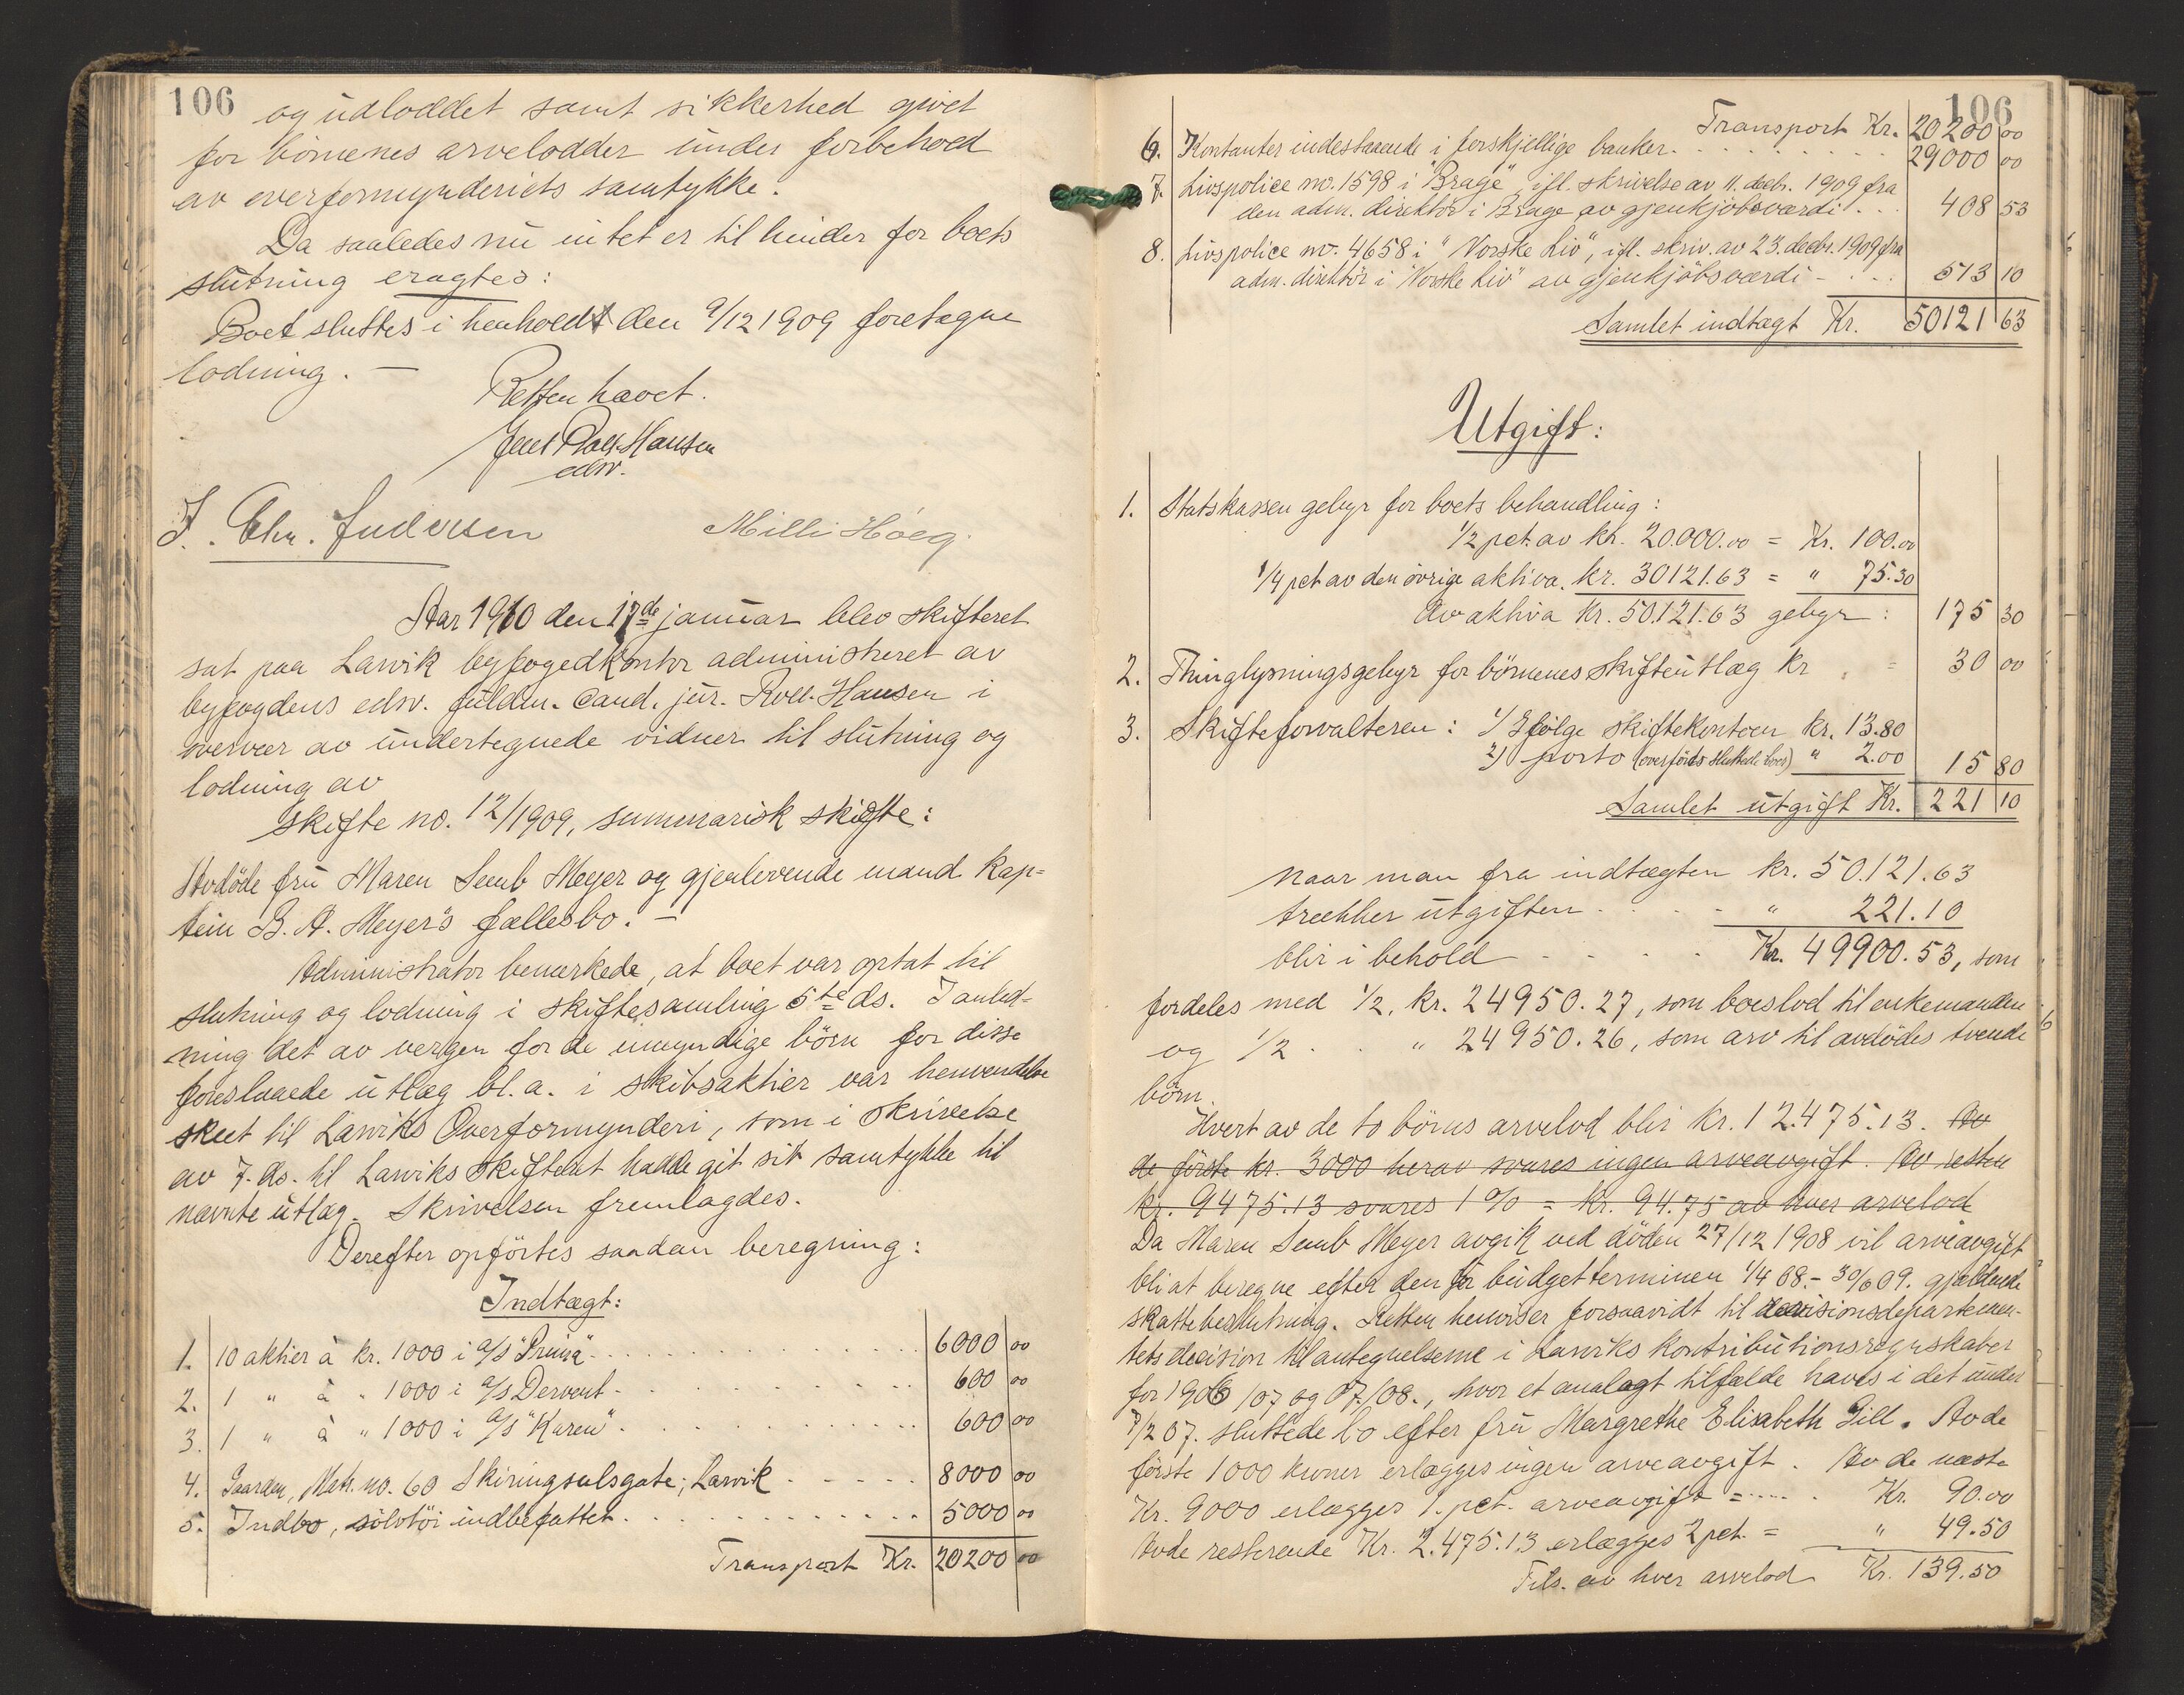 106
og udloddet samt sikkerhed givet
for börnenes arvelodder under forbehold
av overformynderiets samtykke.
Da saaledes nu intet er til hinder for boets
slutning eragtes:
Boet sluttes i henhold t den 9/12 1909 foretagne
lodning. —
Retten hævet.
Hansen
edsv.
J. Chr. Andersen Milli Höeg.
Aar 1910 den 17de januar blev skifteret
sat paa Larvik byfogedkontor administreret av
byfogdens edsv. fuldm. cand. jur. Roll-Hansen i
overvær av undertegnede vidner til slutning og
lodning av
skifte no. 12/1909, summarisk skifte:
Avdöde fru Maren Semb Meyer og gjenlevende mand kap-
tein B. A. Meyer's fællesbo. —
Administrator bemerkede, at boet var optat til
slutning og lodning i skiftesamling 5te ds. I anled-
ning det av vergen for de umyndige börn for disse
foreslaaede utlæg bl. a. i skibsaktier var henvendelse
skeet til Larviks Overformynderi, som i skrivelse
av 7. ds. til Larviks skifteret hadde git sit samtykke til
nævnte utlæg. Skrivelsen fremlagdes.
Derefter opförtes saadan beregning:
Indtægt:
1. 10 aktier à kr. 1000 i a/s "Pruina" 6000 00
2. 1 " à " 1000 i a/s Derwent 600 00
3. 1 " à " 1000 i a/s "Karen" 600 00
4. Gaarden, Matr. no. 60 Skiringsalsgate, Larvik 8000 00
5. Indbo, sölvtöi indbefattet 5000 00
Transport Kr. 20200 00
106
Transport Kr. 20200 00
6. Kontanter indestaaende i forskjellige banker 29000 00
7. Livspolice no. 1598 i "Brage", ifl. skrivelse av 11. decbr. 1909 fra
den adm. direktör i Brage av gjenkjöbsværdi 408 53
8. Livspolice no. 4658 i "Norske Liv", ifl. skriv. av 23. decbr. 1909 fra
adm. direktör i "Norske Liv" av gjenkjöbsværdi 513 10
Samlet indtægt Kr. 50121 63
Utgift:
1. Statskassen gebyr for boets behandling:
1/2 pct. av kr. 20.000.00 = Kr. 100.00
1/4 pct av den övrige aktiva kr. 30121.63 = " 75.30
Av aktiva kr. 50.121.63 gebyr: 175 30
2. Thinglysningsgebyr for börnenes skifteutlæg kr 30 00
3. Skifteforvalteren: 1/ Ifölge skiftekontoen kr. 13.80
2) porto (overförds sluttede boer) " 2.00 15 80
Samlet utgift Kr. 221 10
naar man fra indtægten kr. 50.121.63
trækker utgiften " 221.10
blir i behold Kr. 49900.53, som
fordeles med 1/2, kr. 24950.27, som boeslod til enkemanden
og 1/2 " 24950.26, som arv til avdödes tvende
börn.
Hvert av de to börns arvelod blir kr. 12.475.13. Av
de förste kr. 3000 herav svares ingen arveavgift. Av resten
kr. 9475.13 svares 1 % = kr. 94.75 av hver arvelod
Da Maren Semb Meyer avgik ved döden 27/12 1908 vil arveavgift
bli at beregne efter den for budgetterminen 1/4 08. - 30/6 09. gjældende
skattebeslutning. Retten henviser forsaavidt til decisionsdepartemen-
tets decision til antegnelserne i Larviks kontributionsregnskaber
for 1906/07 og 07/08., hvor et analogt tilfælde haves i det under
7/2 07. sluttede bo efter fru Margrethe Elisabeth Gill. Av de
förste 1000 kroner erlægges ingen arveavgift. Av de næste
Kr. 9000 erlægges 1. pct. arveavgift = Kr. 90.00
Av de resterende Kr. 2.475.13 erlægges 2 pct. = " 49.50
Tils. av hver arvelod Kr. 139.50